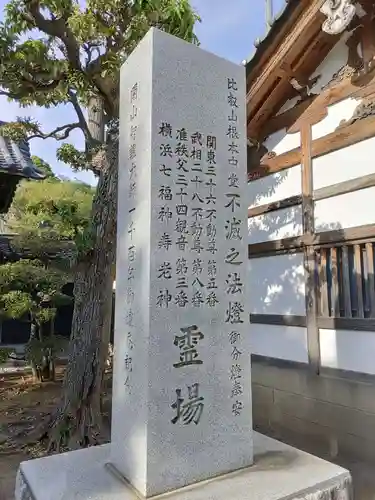 比叡山根本中堂不滅之法燈御分燈奉安
関東三十六不動尊第五番
武相二十八不動尊第八番
准秩父三十四観音第三番
横浜七福神寿老神
霊場
開山鎮座一千百年